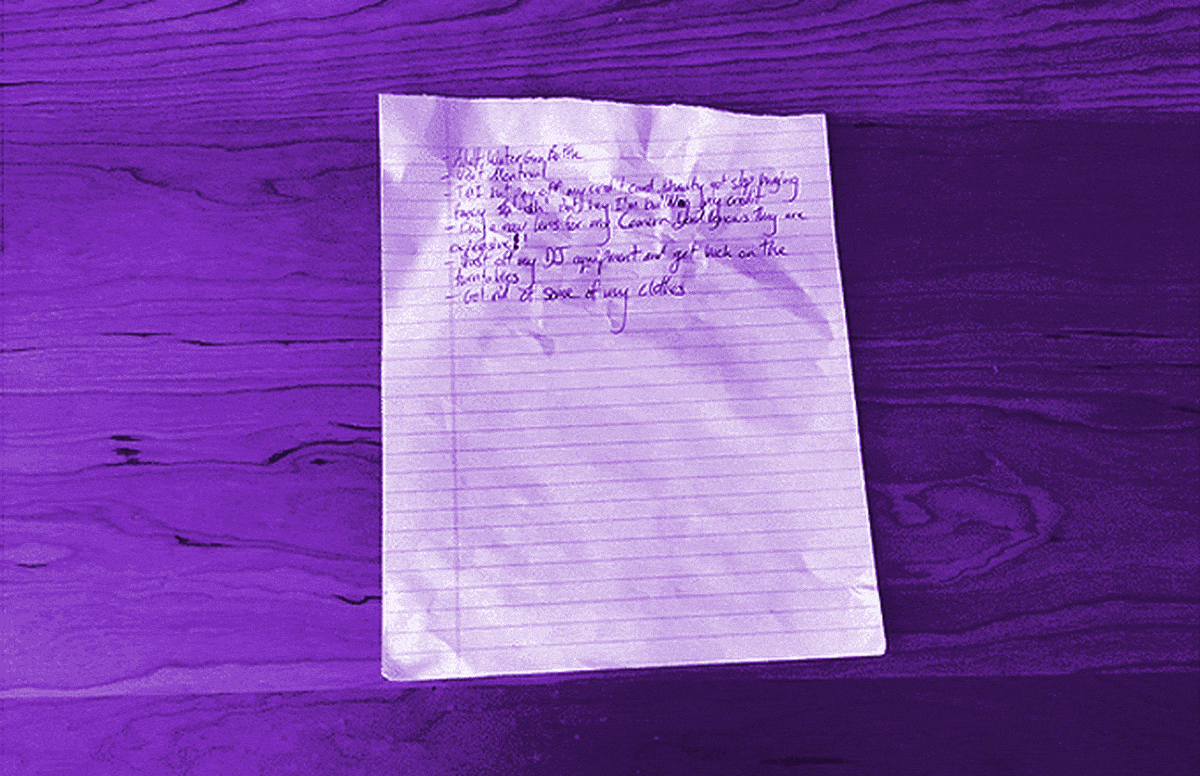 - Water Gun Bottle
- Visit Montreal
- pay off my credit card, already got stop buying
but hey I'm building my credit
- Buy a new lens for my Camera God knows they are
expensive!!
- Dust off my DJ equipment and get back on the
turntables
- Get rid of some of my clothes